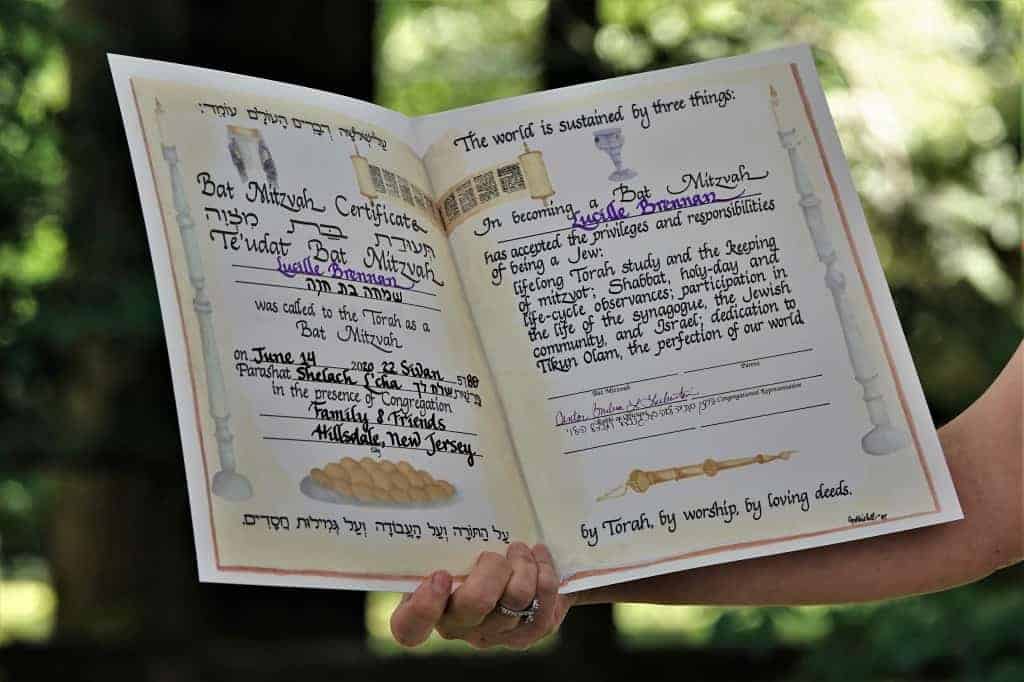 עַל שְׁלֹשָׁה דְבָרִים הָעוֹלָם עוֹמֵד:
Bat Mitzvah Certificate
תְּעוּדַת בַּת מִצְוָה
Te'udat Bat Mitzvah
Lucille Brennan
שמחה בת חוה
was called to the Torah as a
Bat Mitzvah
on June 14 2020 22 Sivan 5780
Parashat Shelach l'cha שלח לך
in the presence of Congregation
Family & Friends
Hillsdale, New Jersey
City
עַל הַתּוֹרָה וְעַל הָעֲבוֹדָה וְעַל גְּמִילוּת חֲסָדִים.
The world is sustained by three things:
In becoming a Bat Mitzvah
Lucille Brennan
has accepted the privileges and responsibilities
of being a Jew:
lifelong Torah study and the keeping
of mitzvot; Shabbat, holy-day and
life-cycle observances; participation in
the life of the synagogue, the Jewish
community, and Israel; dedication to
Tikun Olam, the perfection of our world
Bat Mitzvah
Parents
Cantor
Congregational Representative
by Torah, by worship, by loving deeds.